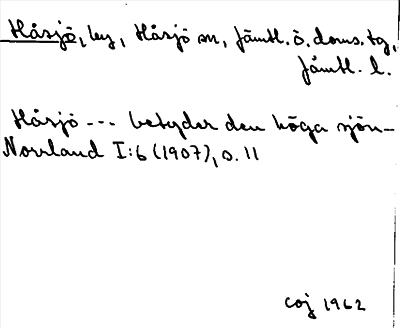 Håsjö, by, Håsjö sn, Jämtl. ö. doms. tg,
Jämtl. l.
Håsjö --- betyder den höga sjön—
Norrland I:6 (1907), s. 11
coj 1962